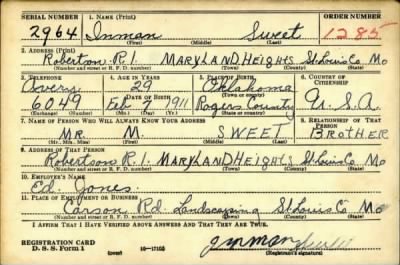 SERIAL NUMBER 1. NAME (Print) ORDER NUMBER
2964 Inman Sweet 1285
(First) (Middle) (Last)
2. ADDRESS (Print)
Robertson R 1. MARYLAND HEIGHTS St. Louis Co Mo
(Number and street or R. F. D. number) (Town) (County) (State)
3. TELEPHONE 4. AGE IN YEARS 5. PLACE OF BIRTH 6. COUNTRY OF CITIZENSHIP
Avery 29 Oklahoma
DATE OF BIRTH (Town or county)
6049 Feb 7 1911 Rogers County U.S.A.
(Exchange) (Number) (Mo.) (Day) (Yr.) (State or country)
7. NAME OF PERSON WHO WILL ALWAYS KNOW YOUR ADDRESS 8. RELATIONSHIP OF THAT PERSON
MR. M. SWEET BROTHER
(Mr., Mrs., Miss) (First) (Middle) (Last)
9. ADDRESS OF THAT PERSON
Robertson R 1. MARYLAND HEIGHTS St. Louis Co Mo
(Number and street or R. F. D. number) (Town) (County) (State)
10. EMPLOYER'S NAME
Ed. Jones.
11. PLACE OF EMPLOYMENT OR BUSINESS
Carson Rd. Landscaping St. Louis Co Mo
(Number and street or R. F. D. number) (Town) (County) (State)
I AFFIRM THAT I HAVE VERIFIED ABOVE ANSWERS AND THAT THEY ARE TRUE.
Inman Sweet
REGISTRATION CARD
D. S. S. Form 1 (over) (Registrant's signature)